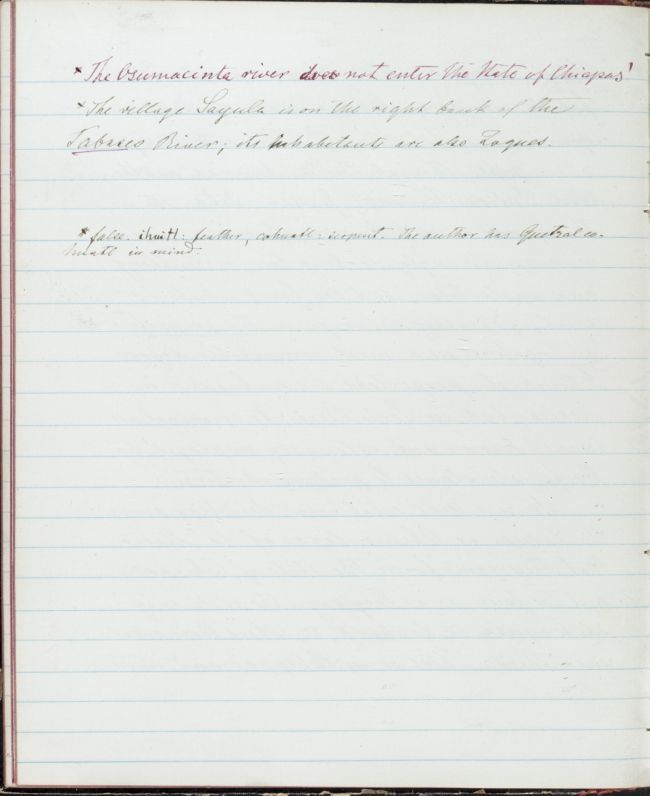 * The Osumacinta river does not enter the State of Chiapas'
* The village Sayula is on the right bank of the
Tabasco River; its inhabitants are also Zoques.
* false. ihuitl: feather, cohuatl: serpent. The author has Quetzalco-
huatl in mind.